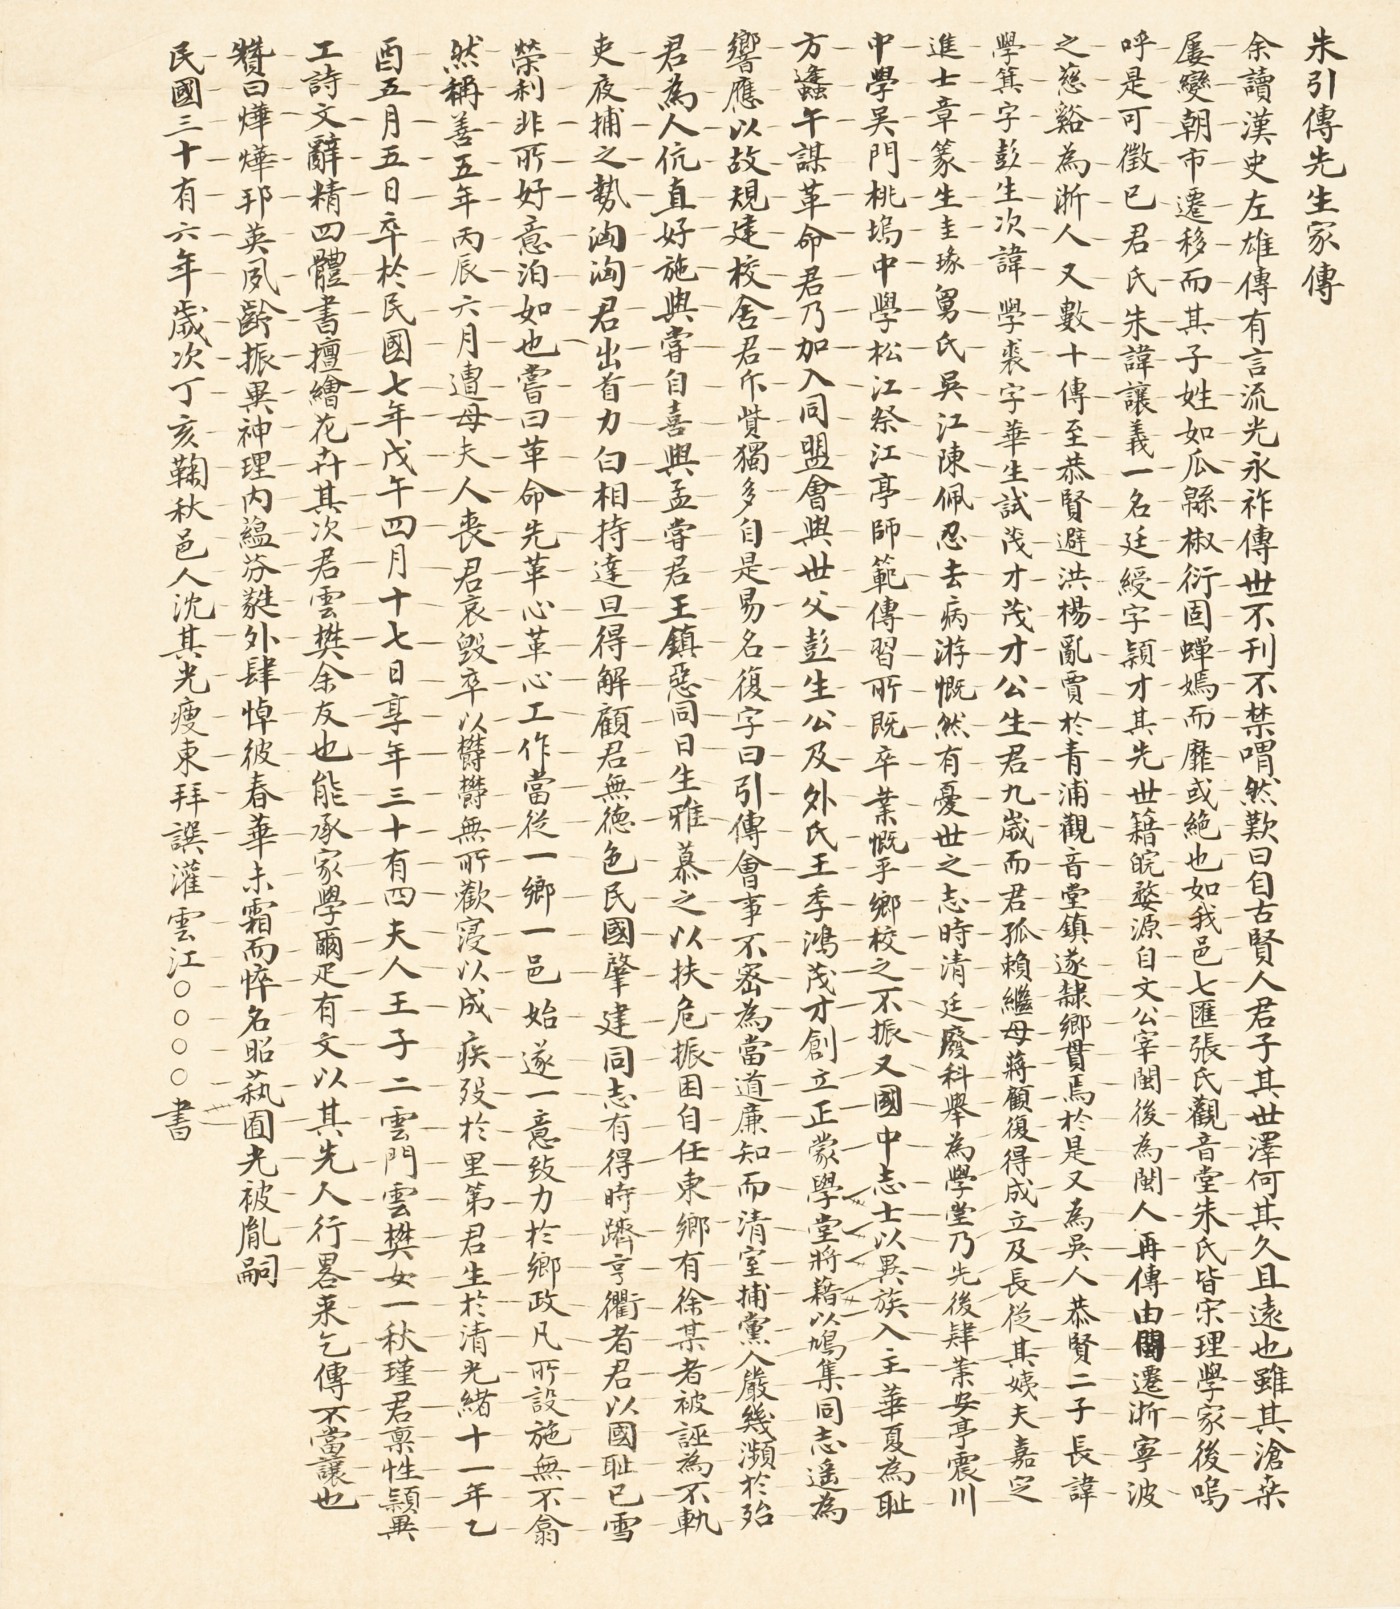 朱引傳先生家傳
余讀漢史左雄傳有言流光永祚傳世不刊不禁喟然歎曰自古賢人君子其世澤何其久且遠也雖其滄桑
屢變朝市遷移而其子姓如瓜緜椒衍固蟬嫣而靡或絕也如我邑七匯張氏觀音堂朱氏皆宋理學家後嗚
呼是可徵已君氏朱諱讓義一名廷綬字穎才其先世籍皖婺源自文公宰閩後為閩人再傳由閩遷浙寧波
之慈谿為浙人又數十傳至恭賢避洪楊亂賈於青浦觀音堂鎮遂隸鄉貫焉於是又為吳人恭賢二子長諱
學箕字彭生次諱學裘字華生試茂才茂才公生君九歲而君孤賴繼母蔣顧復得成立及長從其姨夫嘉定
進士章篆生圭瑑舅氏吳江陳佩忍去病游慨然有憂世之志時清廷廢科舉為學堂乃先後肄業安亭震川
中學吳門桃塢中學松江祭江亭師範傳習所既卒業慨乎鄉校之不振又國中志士以異族入主華夏為恥
方蠭午謀革命君乃加入同盟會與世父彭生公及外氏王季鴻茂才創立正蒙學堂將藉以鳩集同志遥為
響應以故規建校舍君斥貲獨多自是易名復字曰引傳會事不密為當道廉知而清室捕黨人嚴幾瀕於殆
君為人伉直好施與嘗自喜與孟嘗君王鎮惡同日生雅慕之以扶危振困自任東鄉有徐某者被誣為不軌
吏夜捕之勢洶洶君出首力白相持達旦得解顧君無德色民國肇建同志有得時躋亨衢者君以國恥已雪
榮利非所好意泊如也嘗曰革命先革心革心工作當從一鄉一邑始遂一意致力於鄉政凡所設施無不翕
然稱善五年丙辰六月遭母夫人喪君哀毀卒以鬱鬱無所歡寖以成疾歿於里第君生於清光緒十一年乙
酉五月五日卒於民國七年戊午四月十七日享年三十有四夫人王子二雲門雲樊女一秋瑾君稟性穎異
工詩文辭精四體書擅繪花卉其次君雲樊余友也能承家學爾疋有文以其先人行畧來乞傳不當讓也
贊曰燁燁邦英夙齡振異神理內蘊芬蕤外肆悼彼春華未霜而悴名昭蓺囿光被胤嗣
民國三十有六年歲次丁亥鞠秋邑人沈其光瘦東拜譔灌雲江○○○○書